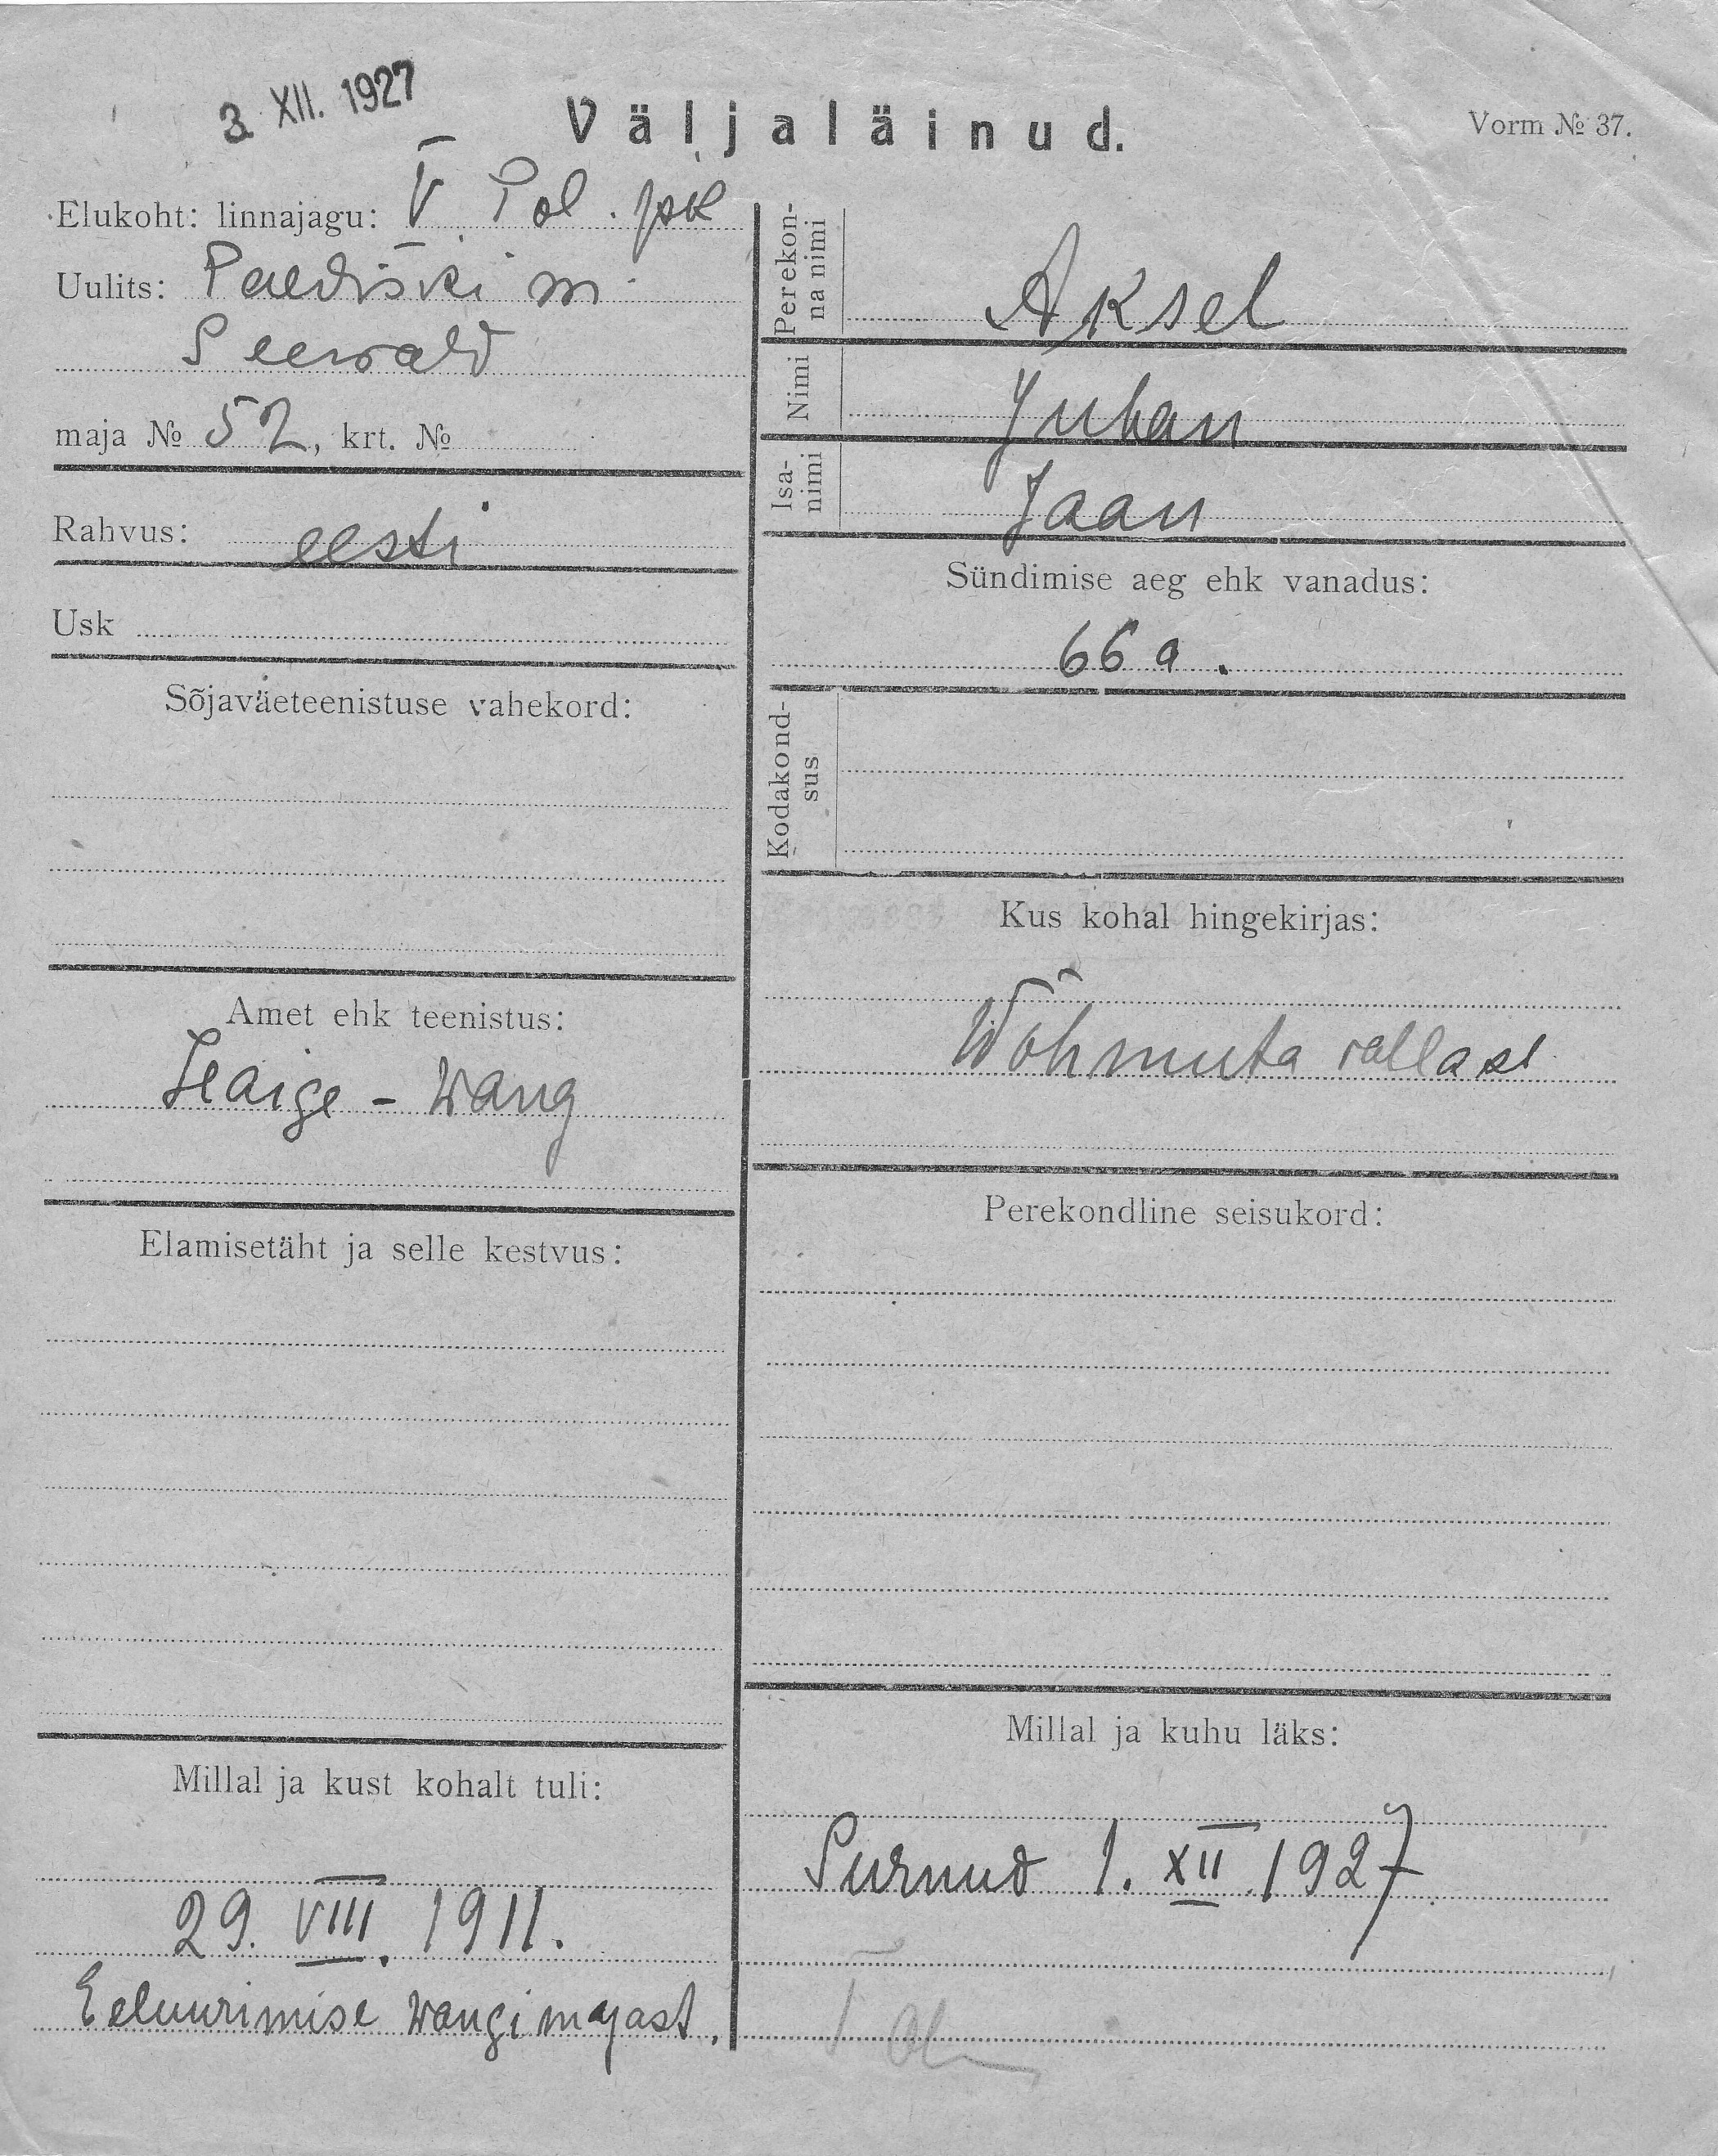 3. XII. 1927
Väljaläinud.
Vorm № 37.
Elukoht: linnajagu: V Pol. jsk
Uulits: Paldiski m
Seewald
maja № 52, krt. №
Rahvus: eesti
Usk
Sõjaväeteenistuse vahekord:
Amet ehk teenistus:
Haige - wang
Elamisetäht ja selle kestvus:
Millal ja kust kohalt tuli:
29. VIII. 1911.
Eeluurimise wangimajast.
Perekon-
na nimi
Aksel
Nimi
Juhan
Isa-
nimi
Jaan
Sündimise aeg ehk vanadus:
66 a.
Kodakond-
sus
Kus kohal hingekirjas:
Wõhmuta vallast
Perekondline seisukord:
Millal ja kuhu läks:
Surnud 1. XII 1927